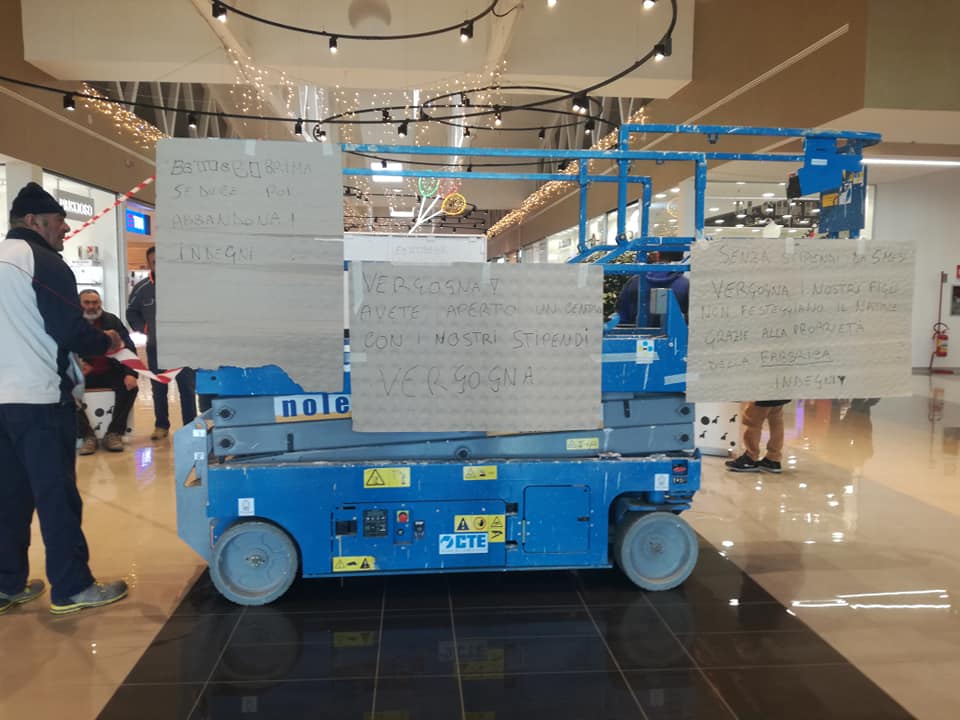 BRAMA
SEDUCE POI
ABBANDONA!
INDEGNI
VERGOGNA
AVETE APERTO UN CENTRO
CON I NOSTRI STIPENDI
VERGOGNA
SENZA STIPENDI DA 5 MESI
VERGOGNA I NOSTRI FIGLI
NON FESTEGGIANO IL NATALE
GRAZIE ALLA PROPRIETA
DELLA FABBRICA
INDEGNI
nole
CTE